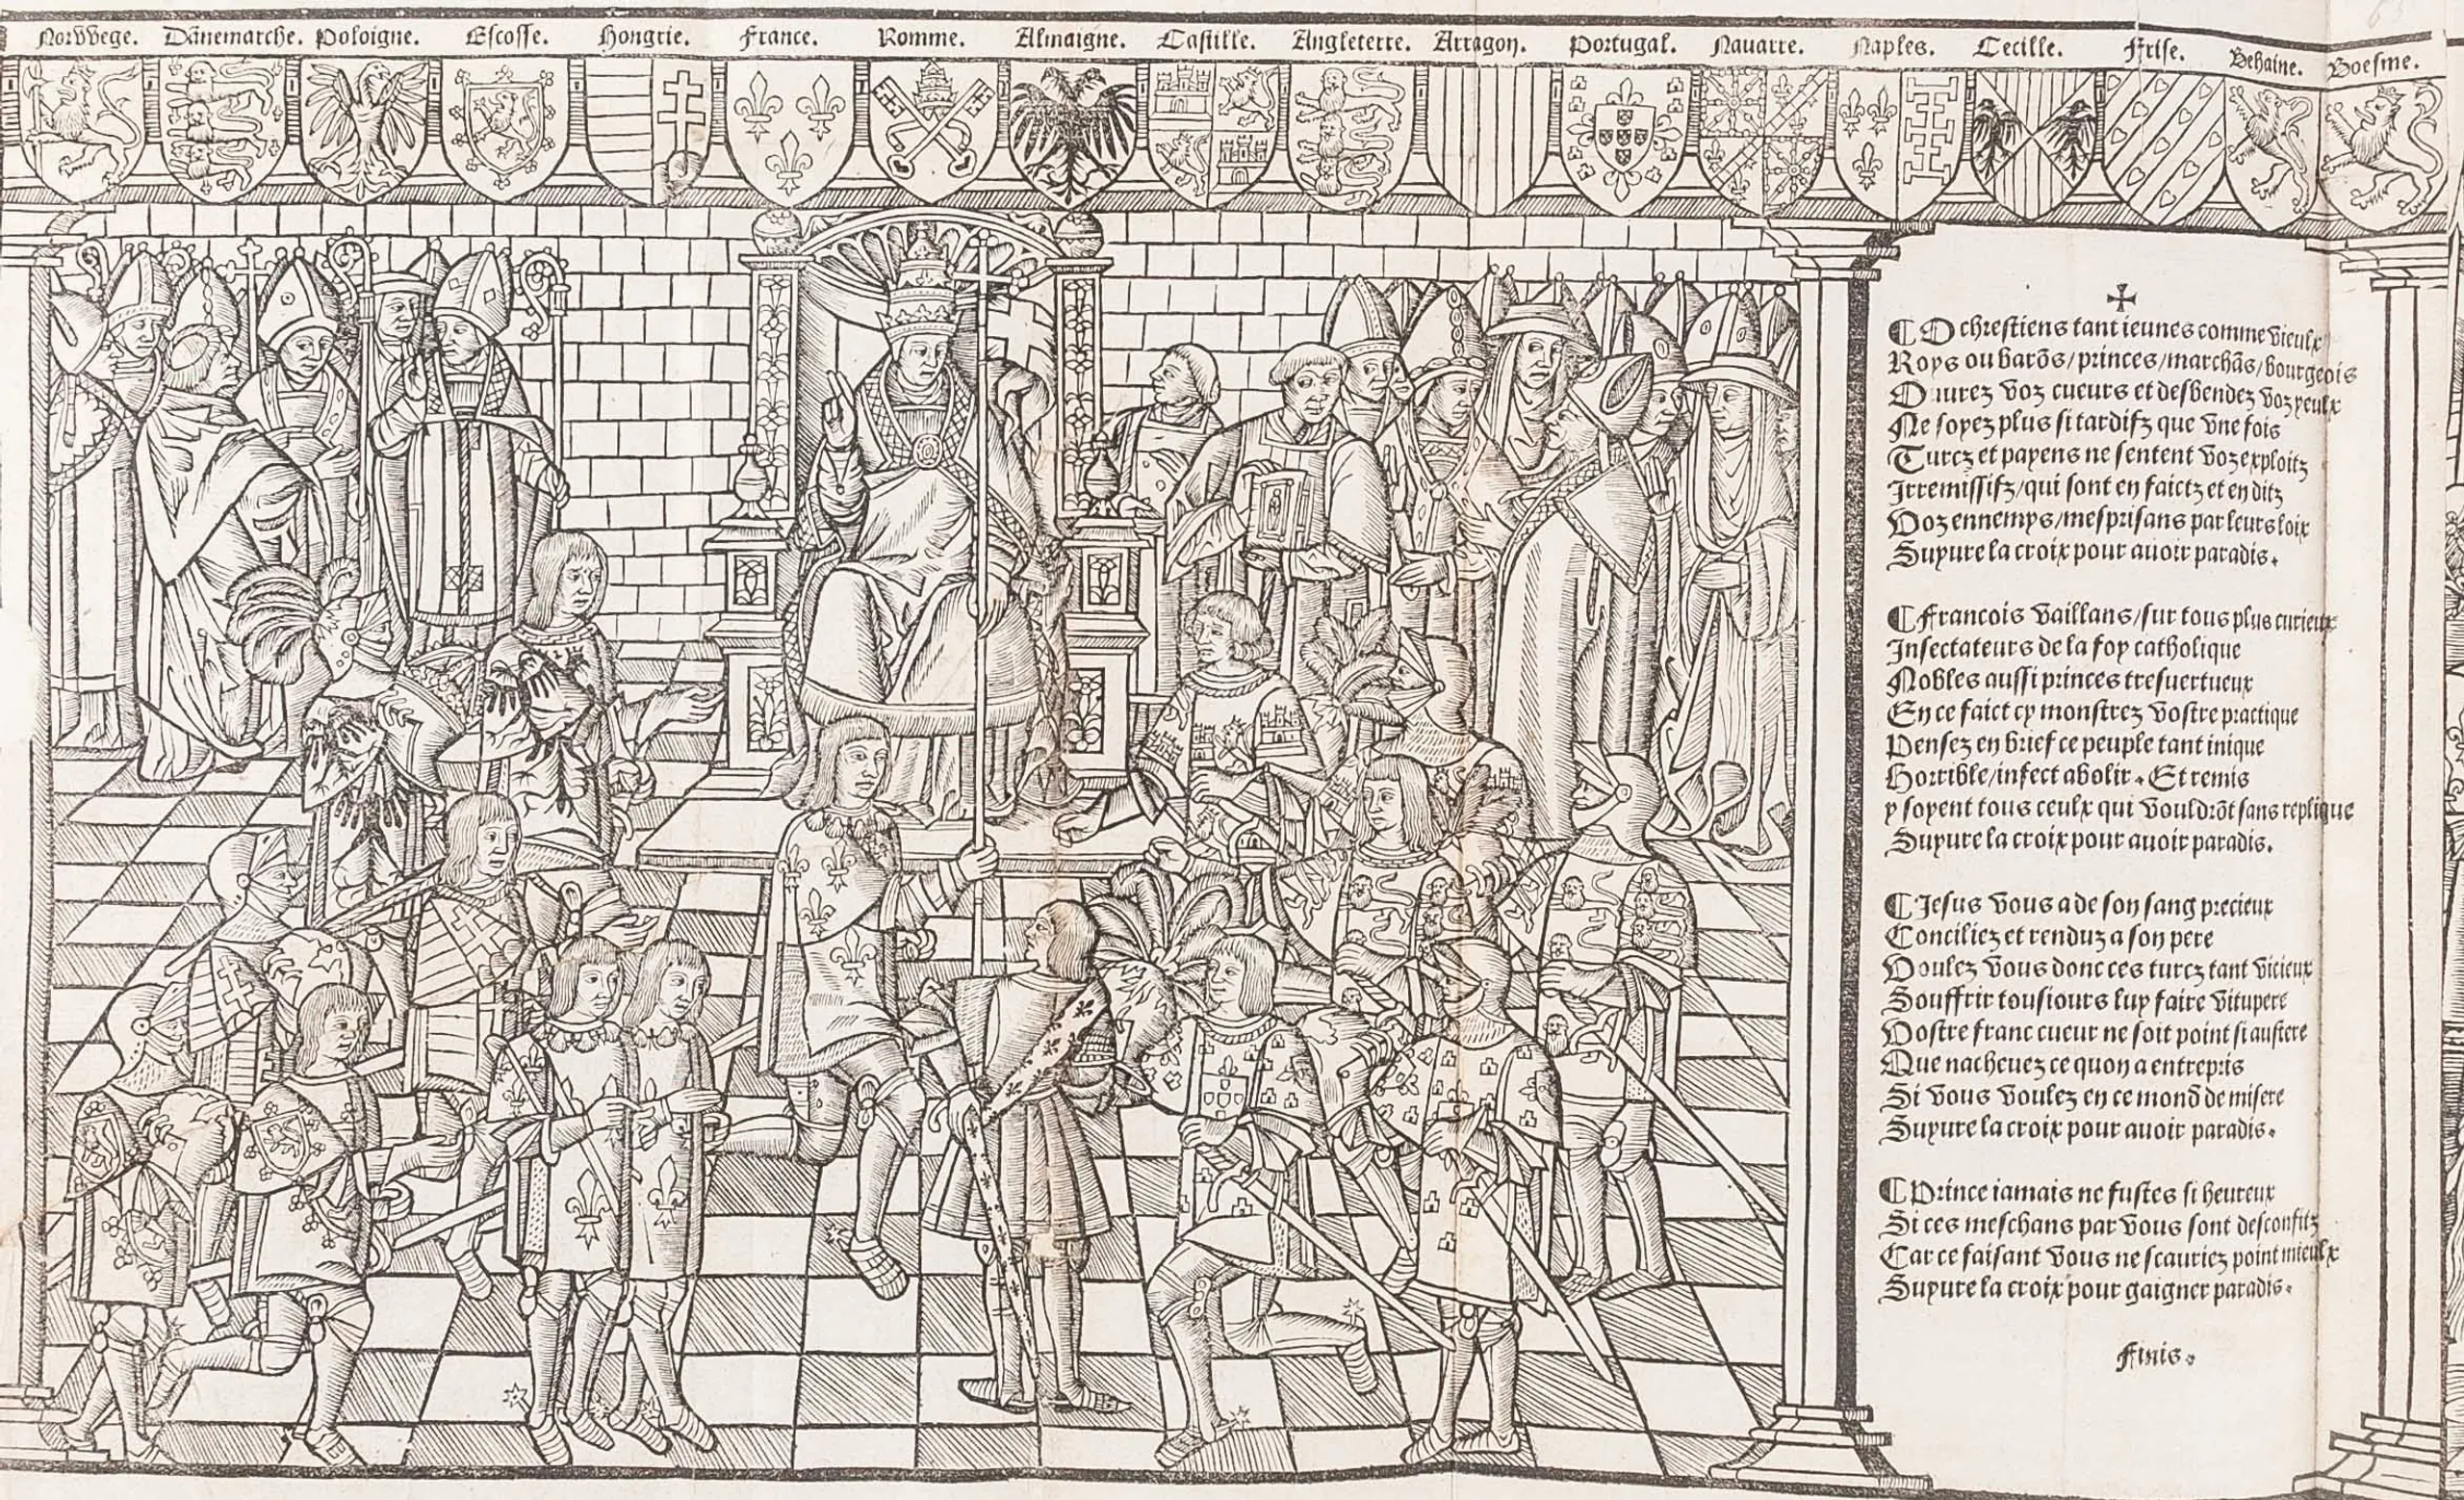 Norvvege. Dānemarche. Poloigne. Escosse. Hongrie. France. Romme. Almaigne. Castille. Angleterre. Arragon. Portugal. Nauarre. Naples. Cecille. Frise. Behaine. Boesme.
✠
¶ O chrestiens tant ieunes comme vieulx
Roys ou barōs/princes/marchās/bourgeois
Ouurez voz cueurs et desbendez voz yeulx
Ne soyez plus si tardifz que vne fois
Turcz et payens ne sentent voz exploitz
Irremissifz/qui sont en faictz et en ditz
Voz ennemys/mesprisans par leurs loix
Suyure la croix pour auoir paradis.
¶ Francois vaillans/sur tous plus curieux
Insectateurs de la foy catholique
Nobles aussi princes tresuertueux
En ce faict cy monstrez vostre practique
Pensez en brief ce peuple tant inique
Horrible/infect abolir. Et remis
y soyent tous ceulx qui vouldrōt sans replique
Suyure la croix pour auoir paradis.
¶ Jesus vous a de son sang precieux
Conciliez et renduz a son pere
Voulez vous donc ces turcz tant vicieux
Souffrir tousiours luy faire vitupere
Vostre franc cueur ne soit point si austere
Que nacheuez ce quon a entrepris
Si vous voulez en ce mond de misere
Suyure la croix pour auoir paradis.
¶ Prince iamais ne fustes si heureux
Si ces meschans par vous sont desconfitz
Car ce faisant vous ne scauriez point mieulx
Suyure la croix pour gaigner paradis.
Finis.